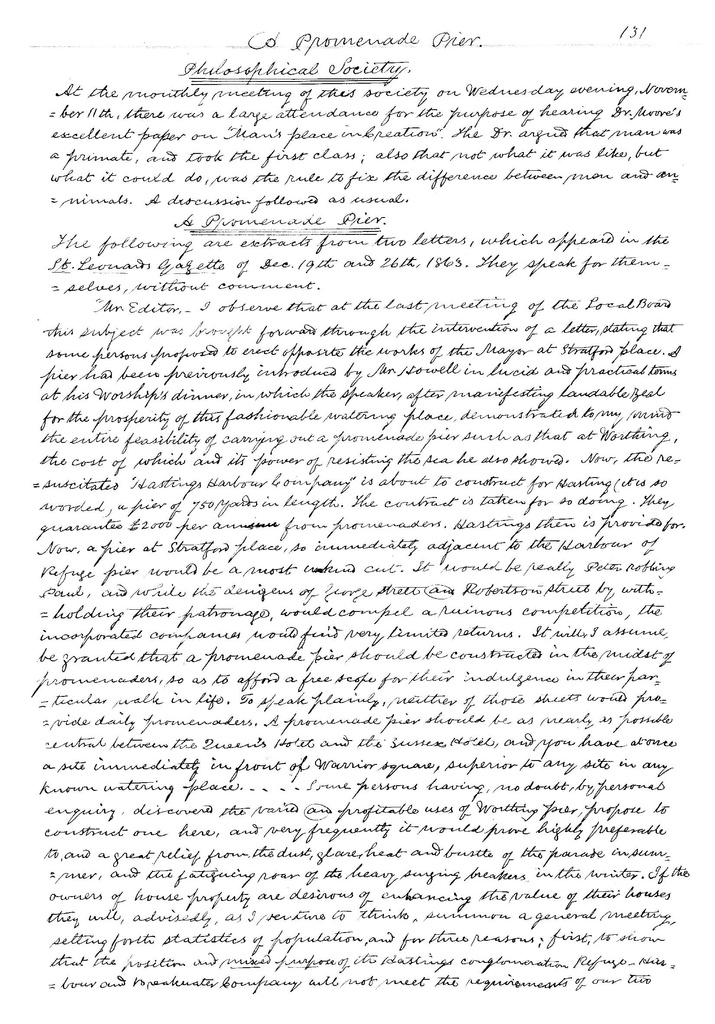 A Promenade Pier. 131
Philosophical Society.
At the monthly meeting of this society on Wednesday evening, Novem=
=ber 11th, there was a large attendance for the purpose of hearing Dr. Moore's
excellent paper on "Man's place in Creation". The Dr. argued that man was
a primate, and took the first class; also that not what it was like, but
what it could do, was the rule to fix the difference between man and an=
=nimals. A discussion followed as usual.
A Promenade Pier.
The following are extracts from two letters, which appeared in the
St. Leonards Gazette of Dec. 19th and 26th, 1863. They speak for them=
=selves, without comment.
"Mr. Editor,- I observe that at the last meeting of the Local Board
this subject was brought forward through the intervention of a letter, stating that
some persons proposed to erect opposite the works of the Mayor at Stratford place. A
pier had been previously introduced by Mr. Howell in lucid and practical terms
at his Worship's dinner, in which the speaker, after manifesting laudable zeal
for the prosperity of this fashionable watering place, demonstrated to my mind
the entire feasibility of carrying out a promenade pier such as that at Worthing,
the cost of which and its power of resisting the sea he also showed. Now, the re=
=suscitated "Hastings Harbour Company" is about to construct for Hasting (it is so
worded, a pier of 750 Yards in length. The contract is taken for so doing. They
guarantee £2000 per annum from promenaders. Hastings then is provided for.
Now, a pier at Stratford place, so immediately adjacent to the Harbour of
Refuge pier would be a most unkind cut. It would be really Peter robbing
Paul, and while the denizens of George street (an Robertson street by with=
=holding their patronage, would compel a ruinous competition, the
incorporated companies would find very limited returns. It will, I assume,
be granted that a promenade pier should be constructed in the midst of
promenaders, so as to afford a free scope for their indulgence in their par=
=ticular walk in life. To speak plainly, neither of those streets would pro=
=vide daily promenaders. A promenade pier should be as nearly as possible
central between the Queen's Hotel and the Sussex Hotel, and you have at once
a site immediately in front of Warrior square, superior to any site in any
known watering place. . . . . Some persons having, no doubt, by personal
enquiry, discovered the varied (an profitable uses of Worthing Pier, propose to
construct one here, and very frequently it would prove highly preferable
to, and a great relief from, the dust, glare, heat and bustle of the parade in sum=
=mer, and the fatiguing roar of the heavy surging breakers in the winter. If the
owners of house property are desirous of enhancing the value of their houses
they will, advisedly, as I venture to think, summon a general meeting,
setting forth statistics of population, and for three reasons; first, to show
that the position and mixed purpose of its Hastings conglomeration Refuge-Har=
=bour and Breakwater Company will not meet the requirements of our two